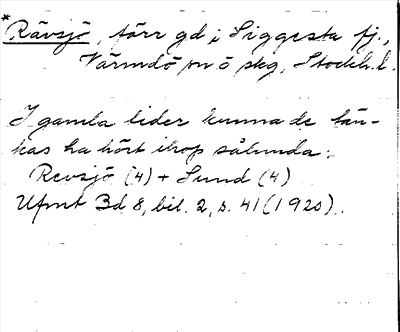 *Rävsjö, förr gd i Siggesta fj.,
Värmdö sn o skg, Stockh.l.
I gamla tider kunna de tän-
kas ha hört ihop sålunda:
Revsjö (4) + Sund (4)
Ufmt Bd 8, bil. 2, s. 41 (1920).